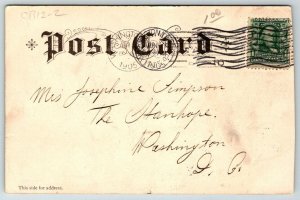 CR12-2
1.00
Post Card
1905
Mrs Josephine Simpson
The Stanhope.
Washington
D. C.
This side for address.